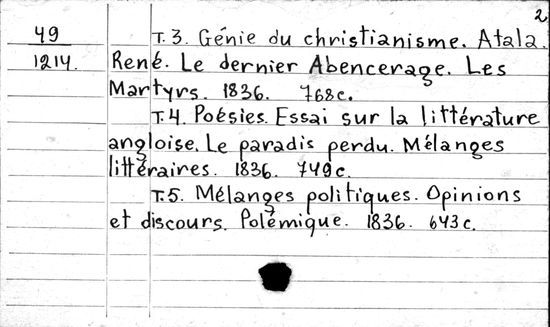 2
49
1214.
T. 3. Génie du christianisme. Atala.
René. Le dernier Abencerage. Les
Martyrs. 1836. 768c.
T. 4. Poésies. Essai sur la littérature
angloise. Le paradis perdu. Mélanges
littéraires. 1836. 749c.
T. 5. Mélanges politiques. Opinions
et discours. Polémique. 1836. 643c.